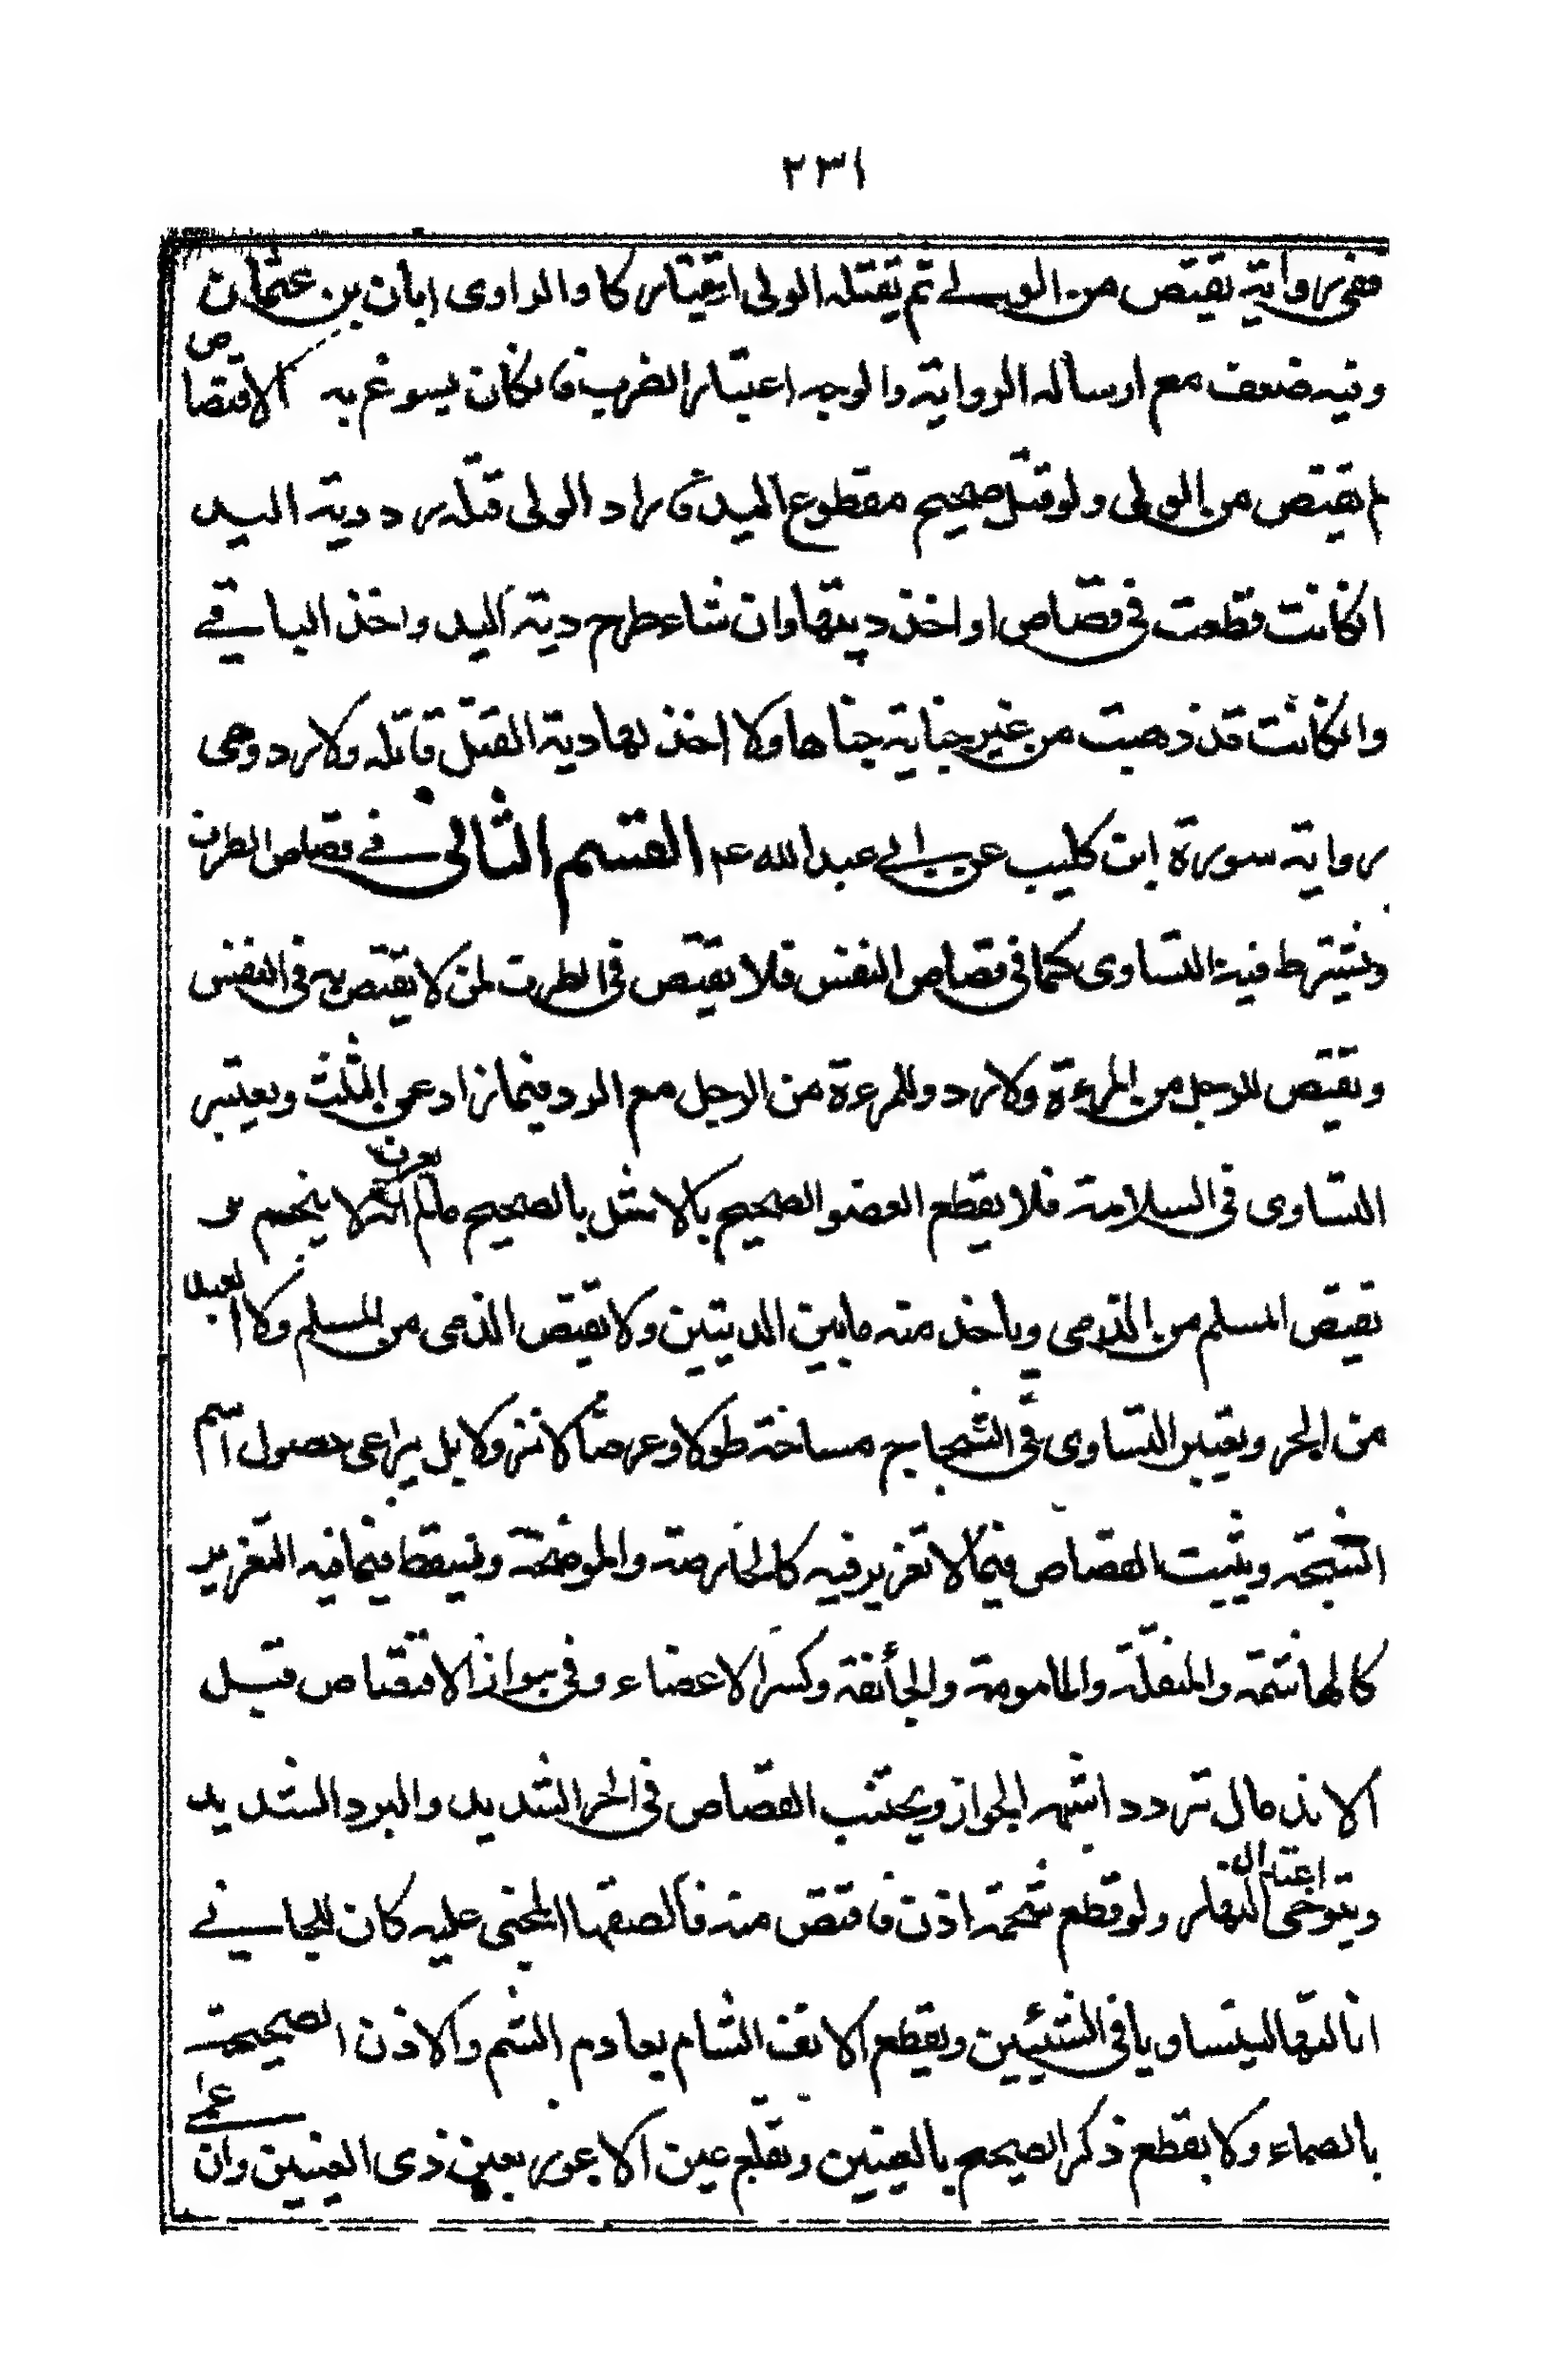 ٢٣١
ففى رواية يقتص من الولى ثم يقتله الولى او يتتاركا والراوى ابان بن عثمان
وفيه ضعف مع ارساله الرواية والوجه اعتبار الضرب فانكان يسوغ به الاقتصاص
لم يقتص من الولى ولو قتل صحيح مقطوع اليد فاراد الولى قتله رد دية اليد
انكانت قطعت فى قصاص او اخذ ديتها وان شاء طرح دية اليد واخذ الباقى
وانكانت قد ذهبت من غير جناية جناها ولا اخذ لها دية القتل قاتله ولا رد وهى
رواية سورة ابن كليب عن ابى عبد الله عم القسم الثانى فى قصاص الطرف
ويشترط فيه التساوى كما فى قصاص النفس فلا يقتص فى الطرف لمن لا يقتص به فى النفس
ويقتص للرجل من المرءة ولا رد وللمرءة من الرجل مع الرد فيما زاد عن الثلث ويعتبر
التساوى فى السلامة فلا يقطع العضو الصحيح بالاشل بالصحيح مالم يعرف انه لا ينحسم و
يقتص المسلم من الذمى وياخذ منه ما بين الديتين ولا يقتص الذمى من المسلم ولا العبد
من الحر ويعتبر التساوى فى الشجاج مساحة طولا وعرضا لا نزولا بل يراعى حصول اسم
الشجة ويثبت القصاص فيما لا تعزير فيه كالخارصة والموضحة ويسقط فيما فيه التعزير
كالهاشمة والمنقلة والمامومة والجائفة وكسر الاعضاء وفى جواز الاقتصاص قبل
الاندمال تردد اشبهه الجواز ويجتنب القصاص فى الحر الشديد والبرد الشديد
ويتوخى اعتدال النهار ولو قطع شحمة اذن فاقتص منه فالصقها المجنى عليه كان للجانى
ازالتها ليتساويا فى الشيئين ويقطع الانف الشام بعادم الشم والاذن الصحيحة
بالصماء ولا يقطع ذكر الصحيح بالعنين وتقلع عين الاعور بعين ذى العينين وان عمى